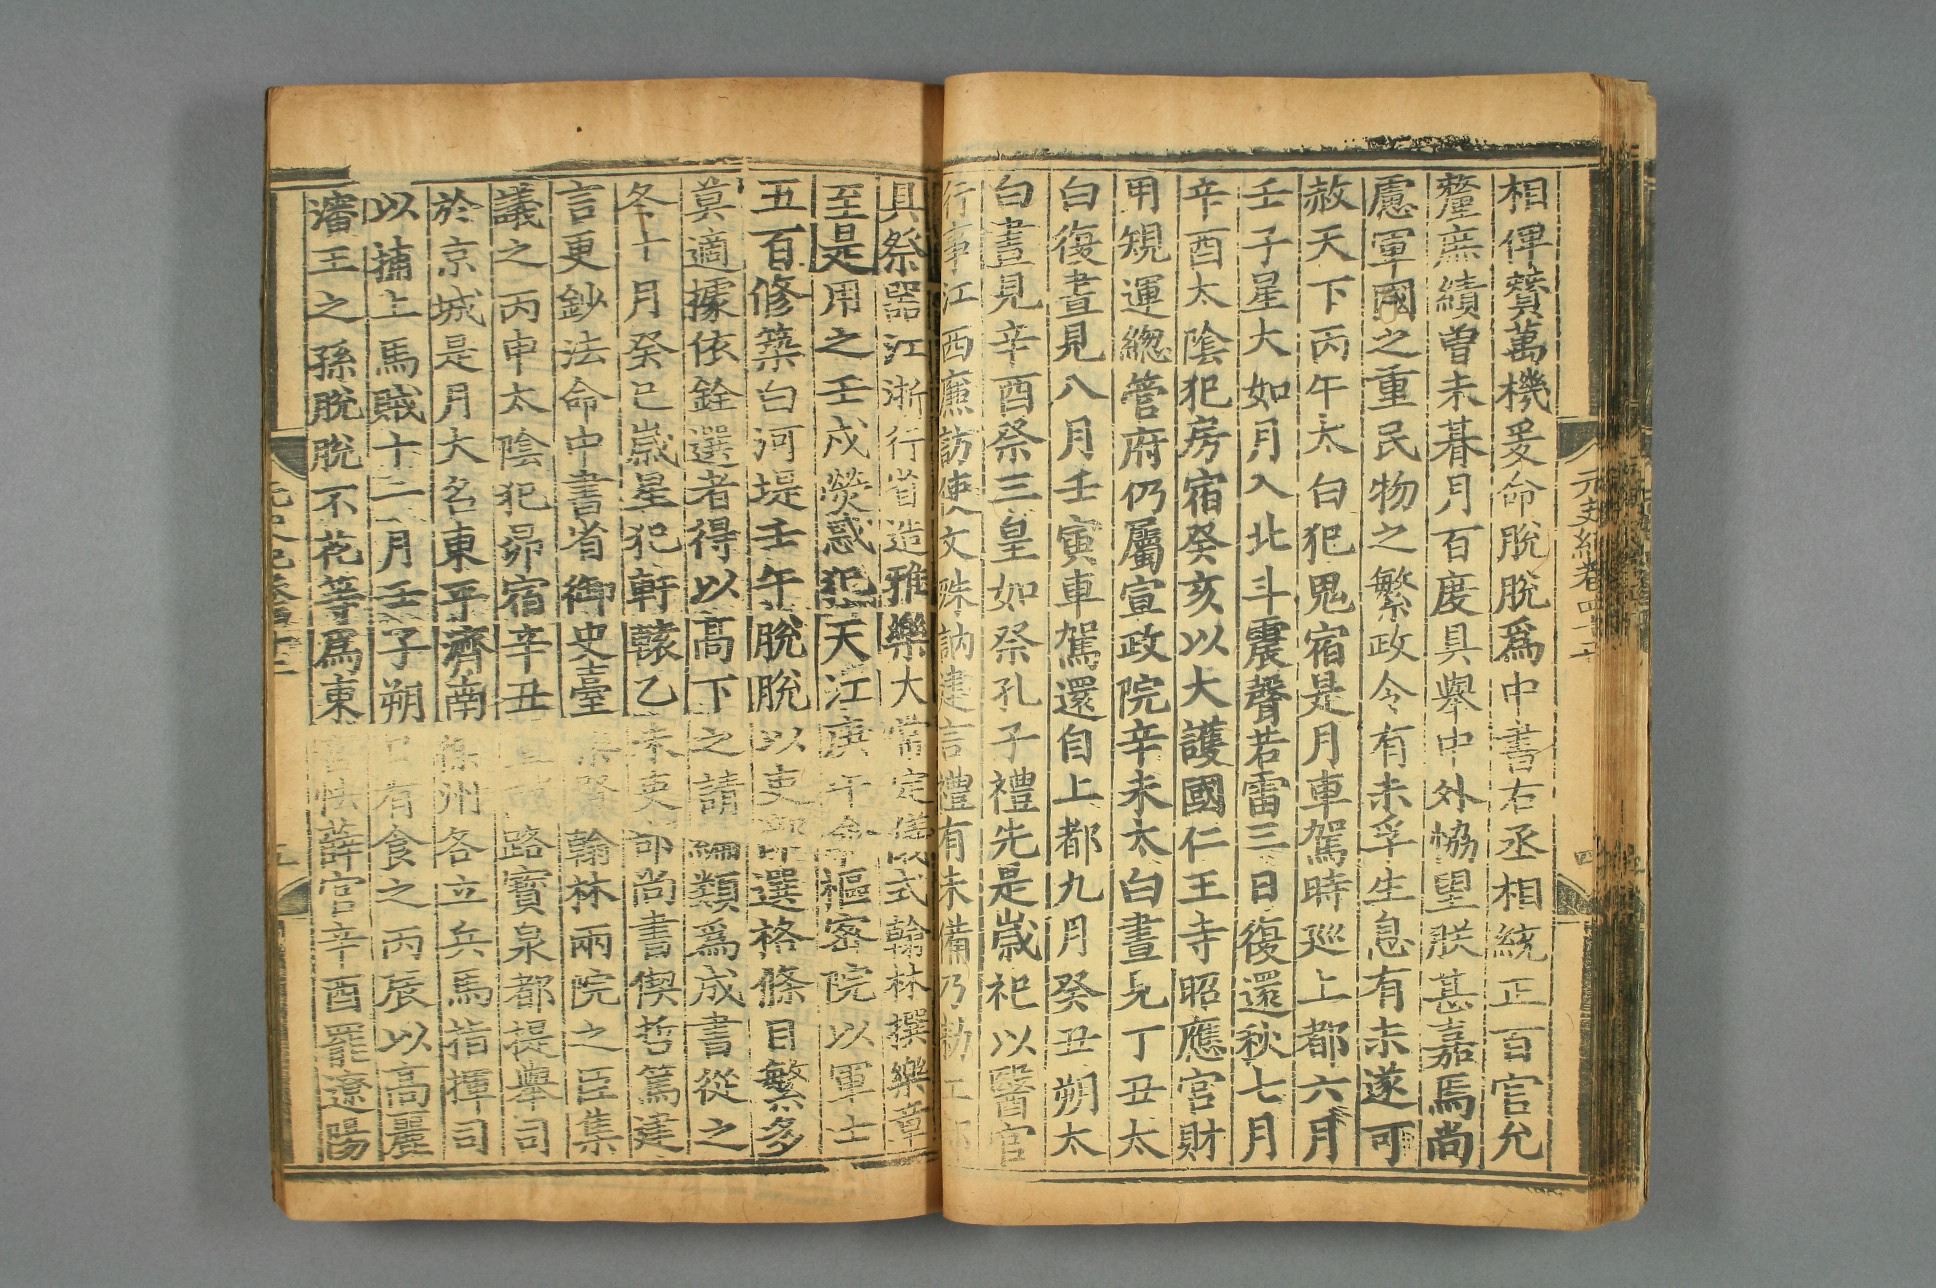 元史紀卷四十二
四
相俾贊萬機爰命脫脫爲中書右丞相統正百官允
釐庶績曾未朞月百度具舉中外恊望朕甚嘉焉尚
慮軍國之重民物之繁政令有未孚生息有未遂可
赦天下丙午太白犯鬼宿是月車駕時廵上都六月
壬子星大如月入北斗震聲若雷三日復還秋七月
辛酉太陰犯房宿癸亥以大護國仁王寺昭應宮財
用䂓運緫管府仍屬宣政院辛未太白晝見丁丑太
白復晝見八月壬寅車駕還自上都九月癸丑朔太
白晝見辛酉祭三皇如祭孔子禮先是歲祀以醫官
行事江西廉訪使文殊訥建言禮有未備乃勑工部
具祭器江浙行省造雅樂太常定儀式翰林撰樂章
至是用之壬戌熒惑犯天江庚午命樞密院以軍士
五百修築白河堤壬午脫脫以吏部選格條目繁多
莫適據依銓選者得以高下之請編類爲成書從之
冬十月癸巳歲星犯軒轅乙未吏部尚書偰哲篤建
言更鈔法命中書省御史臺集賢翰林兩院之臣集
議之丙申太陰犯昴宿辛丑置諸路寳泉都提舉司
於京城是月大名東平濟南徐州各立兵馬指揮司
以捕上馬賊十二月壬子朔日有食之丙辰以高麗
瀋王之孫脫脫不花等爲東宮怯薛官辛酉罷遼陽
元史紀卷四十二
五